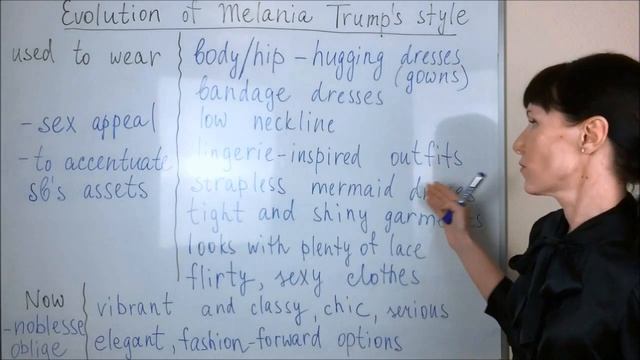 Evolution of Melania Trump's style
used to wear
body/hip - hugging dresses
(gowns)
bandage dresses
- sex appeal
low neckline
- to accentuate
sb's assets
lingerie - inspired outfits
strapless mermaid
tight and shiny garments
looks with plenty of lace
flirty, sexy clothes
Now
- noblesse
oblige
vibrant and classy, chic, serious
elegant, fashion-forward options